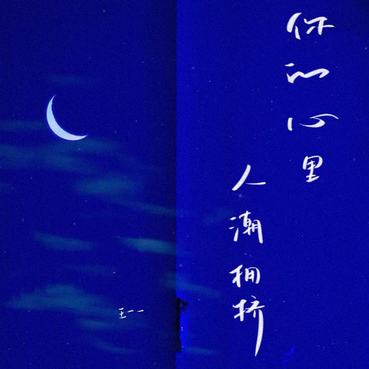 你的心里
人潮拥挤
王一一